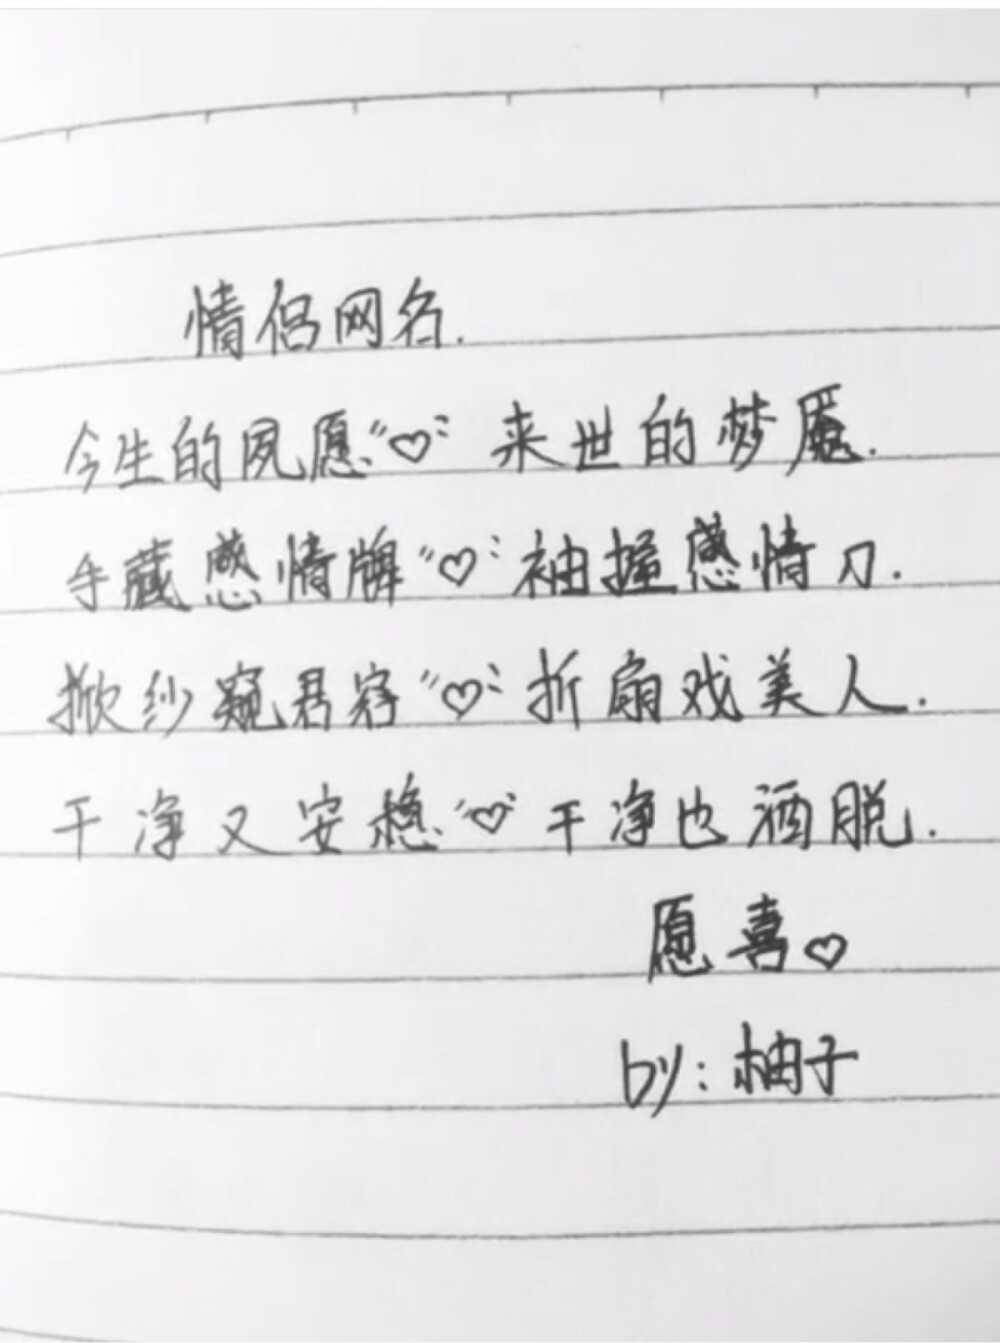 情侣网名.
今生的夙愿"♡"来世的梦魇.
手藏感情牌"♡"袖握感情刀.
掀纱窥君容"♡"折扇戏美人.
干净又安稳"♡"干净也洒脱.
愿喜♡
by:柚子